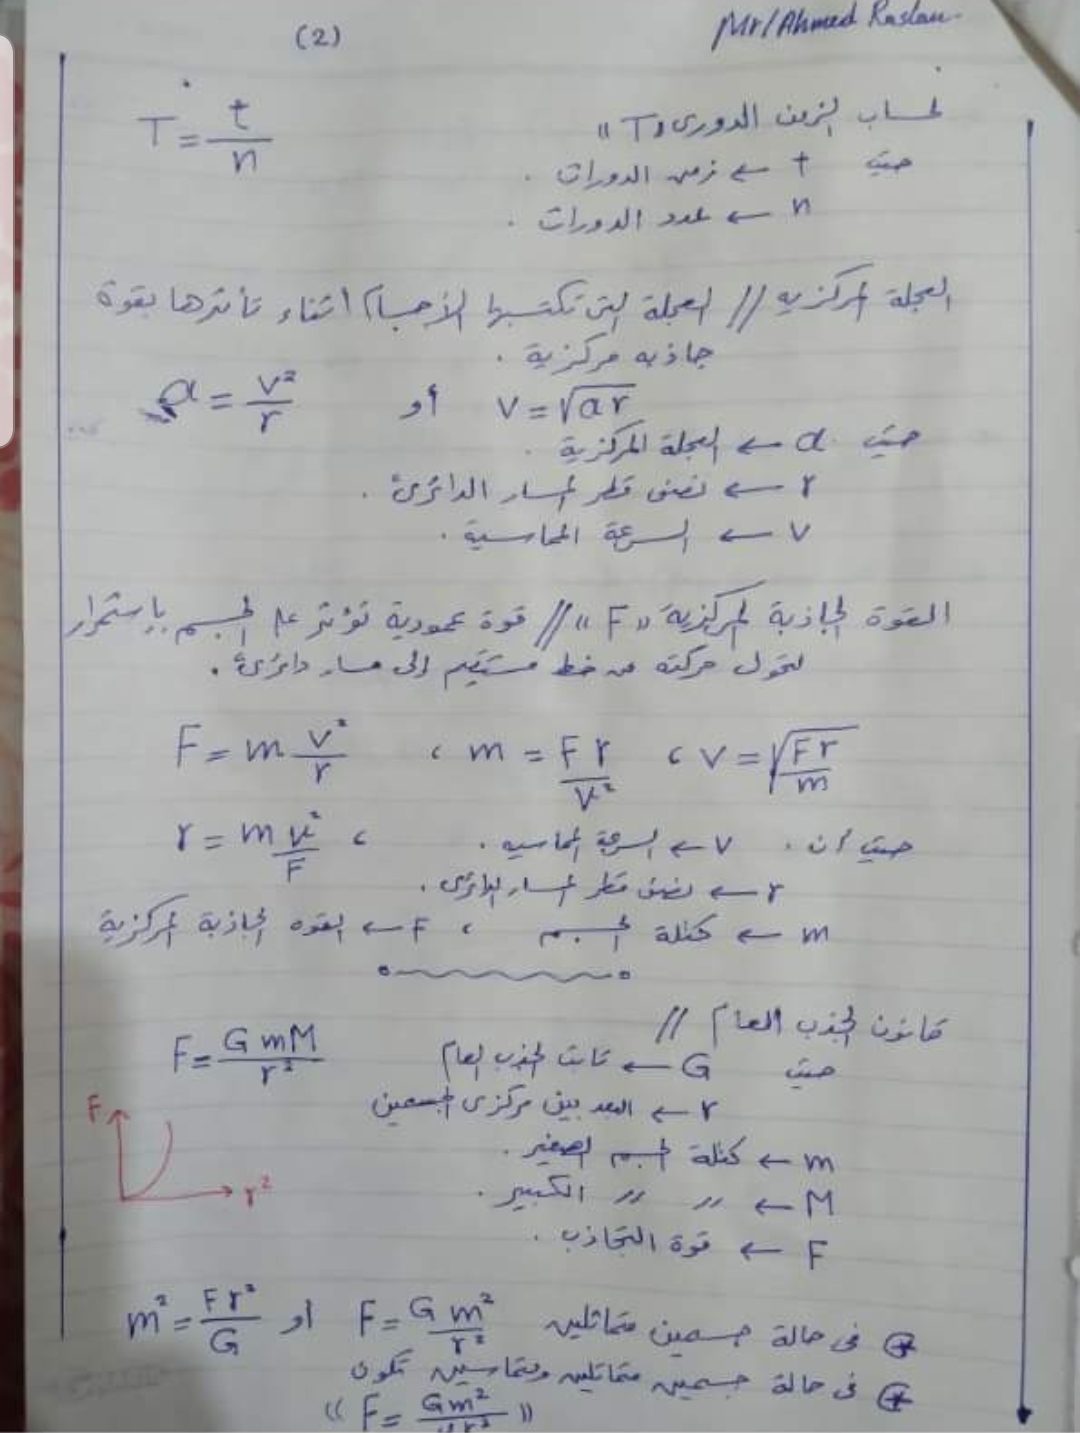 (2)
Mr/Ahmed Raslan
لحساب الزمن الدورى «T»
T = t/n
حيث t ← زمن الدورات .
n ← عدد الدورات .
العجلة المركزيه // العجلة التى تكتسبها الأجسام أثناء تأثرها بقوة
جاذبه مركزية .
a = v²/r أو v = √ar
حيث a ← العجلة المركزية .
r ← نصف قطر المسار الدائرى .
v ← السرعة المماسية .
القوة الجاذبة المركزية «F» // قوة عمودية تؤثر على الجسم بإستمرار
لتحول حركته من خط مستقيم إلى مسار دائرى .
F = m v²/r ، m = Fr/v² ، v = √Fr/m
r = m v²/F ،
حيث أن . v ← السرعة المماسيه .
r ← نصف قطر المسار الدائرى .
m ← كتلة الجسم ، F ← القوه الجاذبة المركزية
قانون الجذب العام //
F = GmM/r²
حيث G ← ثابت الجذب العام
r ← البعد بين مركزى الجسمين
m ← كتلة الجسم الصغير .
M ← 〃 〃 الكبير .
F ← قوة التجاذب .
F
r²
فى حالة جسمين متماثلين F = Gm²/r² أو m² = Fr²/G
فى حالة جسمين متماثلين ومتماسين تكون
«F = Gm²/4r²»